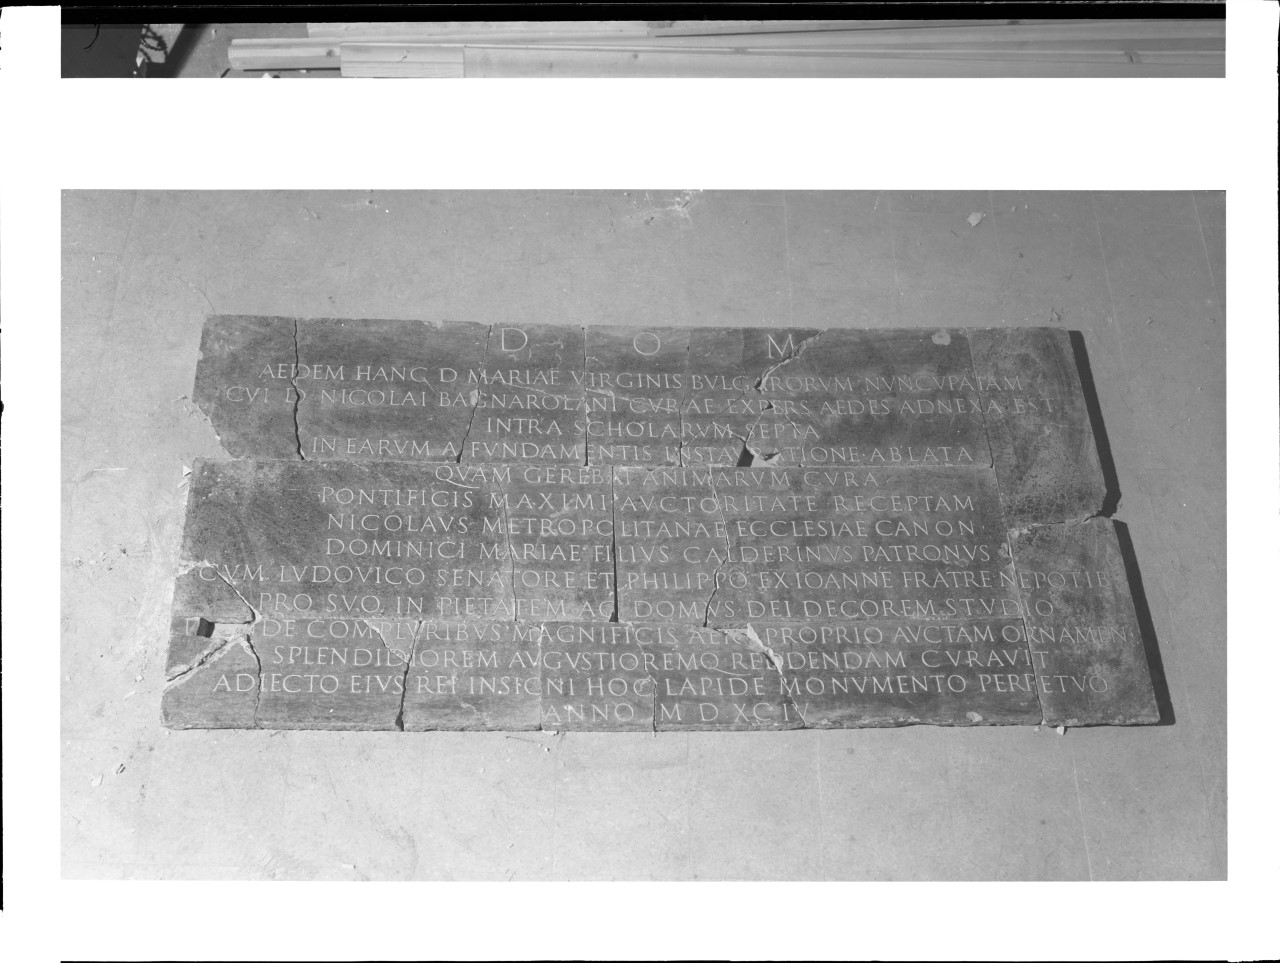 D O M
AEDEM HANC D MARIAE VIRGINIS BVLGARORVM NVNCVPATAM
CVI D NICOLAI BAGNAROLANI CVRIAE EXPERS AEDES ADNEXA EST
INTRA SCHOLARVM SEPTA
IN EARVM A FVNDAMENTIS INSTAVRATIONE ABLATA
QVAM GEREBAT ANIMARVM CVRA
PONTIFICIS MAXIMI AVCTORITATE RECEPTAM
NICOLAVS METROPOLITANAE ECCLESIAE CANON
DOMINICI MARIAE FILIVS CALDERINVS PATRONVS
CVM LVDOVICO SENATORE ET PHILIPPO EX IOANNE FRATRE NEPOTIB
PRO SVO IN PIETATEM AC DOMVS DEI DECOREM STVDIO
DE COMPLVRIBVS MAGNIFICIS PROPRIO AVCTAM ORNAMEN
SPLENDIDIOREM AVGVSTIOREMQ REDDENDAM CVRAVIT
ADIECTO EIVS REI INSIGNI HOC LAPIDE MONVMENTO PERPETVO
ANNO M D XCIV